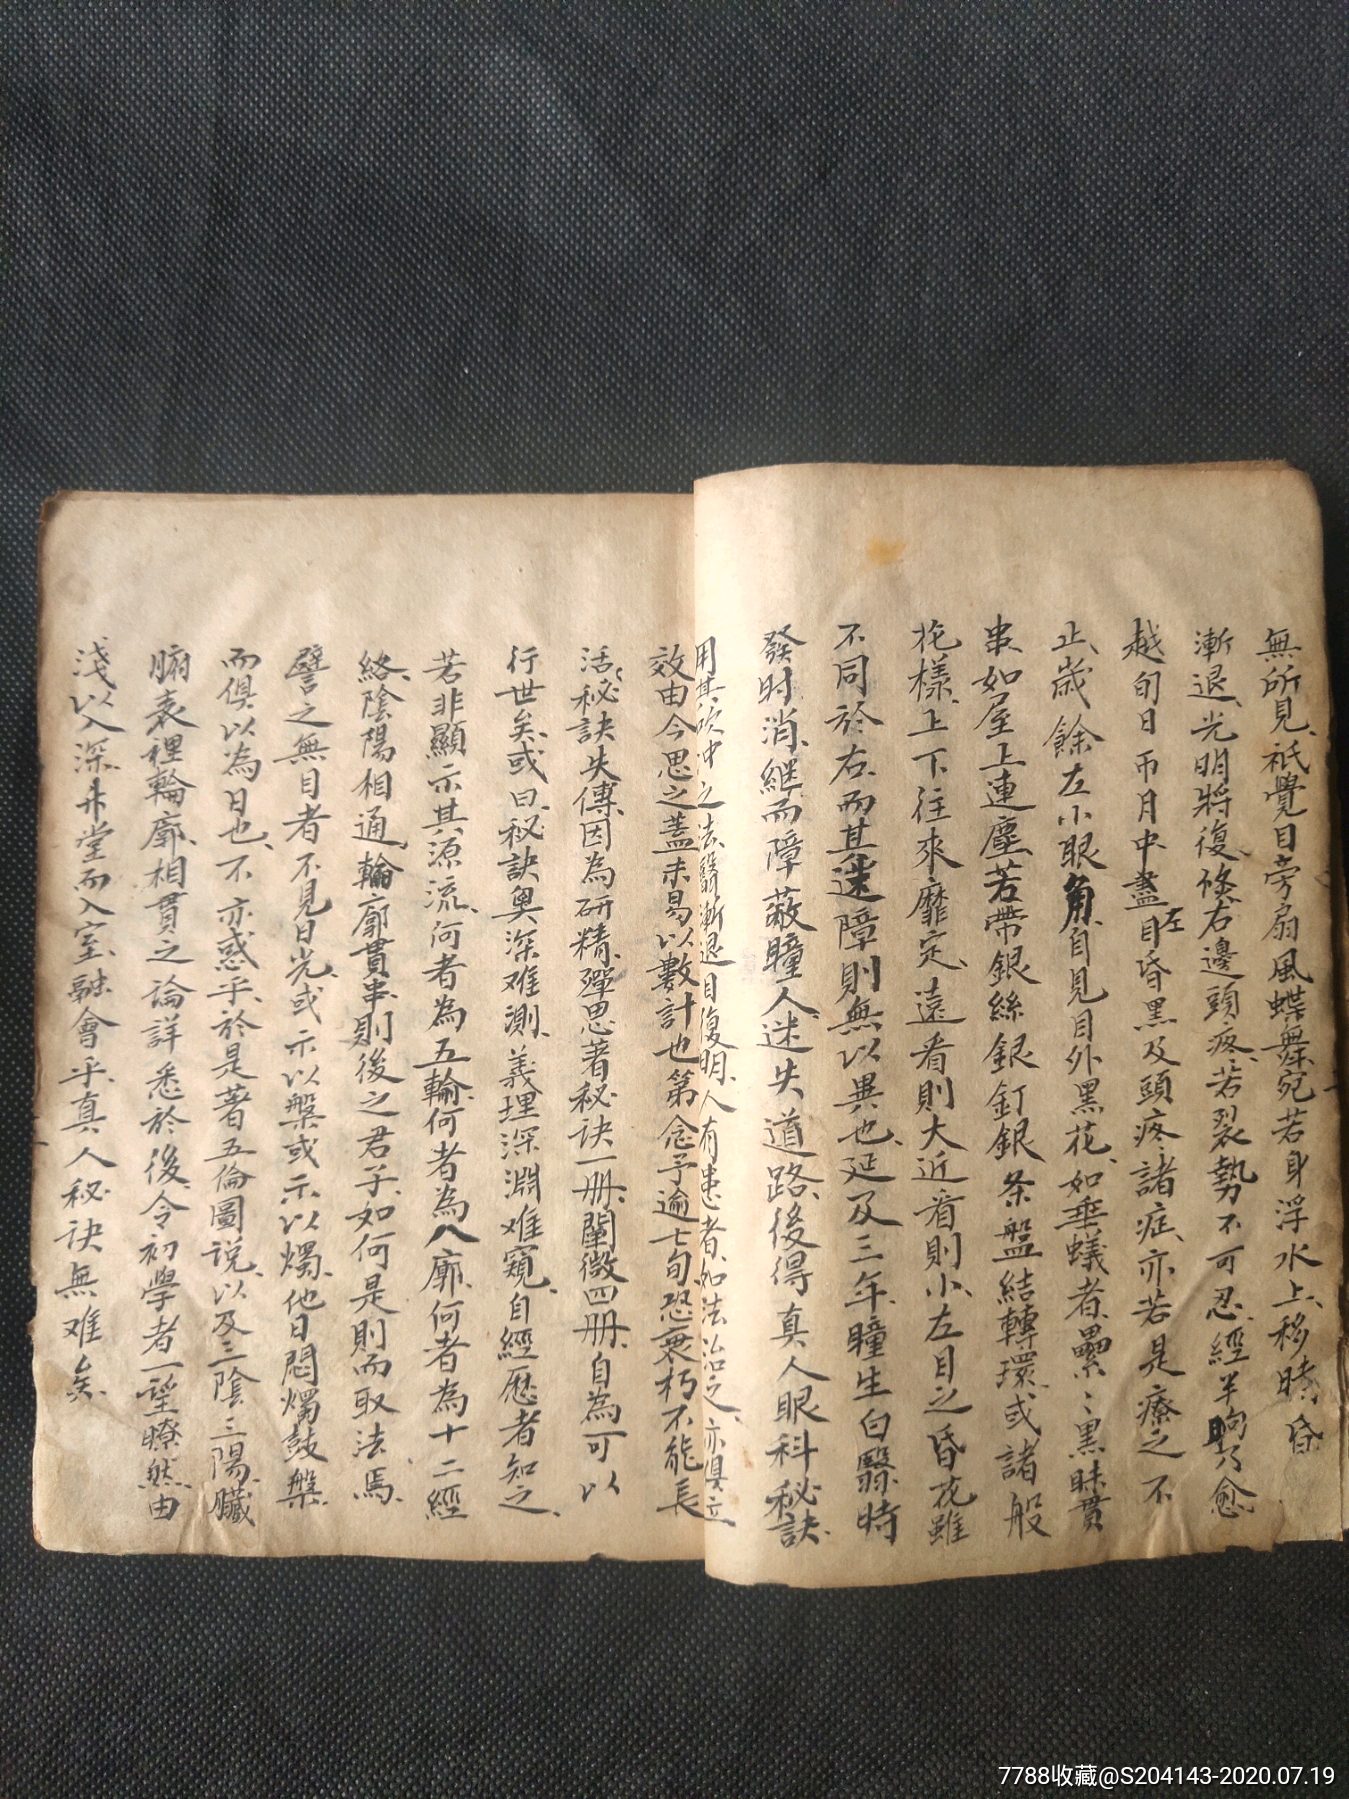 無所見祇覺目旁扇風蝶舞宛若身浮水上移時昏
漸退光明將復倐右邊頭疼若裂勢不可忍經半晌乃愈
越旬日帀月中盡左目昏黑及頭疼諸症亦若是療之不
止歲餘左小眼角自見目外黑花如垂蟻者纍〻黑昧貫
串如屋上連塵若帶銀絲銀釘銀条盤結轉環或諸般
花樣上下往來靡定遠看則大近看則小左目之昏花雖
不同於右而其迷障則無以異也延及三年瞳生白翳時
發时消繼而障蔽瞳人迷失道路後得真人眼科秘訣
用其吹冲之法翳漸退目復明人有患者如法治之亦俱立
效由今思之蓋未易以數計也第念予逾七旬恐衰朽不能長
活秘訣失傳因為研精殫思著秘诀一册闡微四册自為可以
行世矣或曰秘訣奥深难測義理深淵难窺自經歷者知之
若非顯示其源流何者為五輪何者為八廓何者為十二經
絡陰陽相通輪廓貫串則後之君子如何是則而取法焉
譬之無目者不見日光或示以槃或示以燭他日悶燭鼓槃
而俱以為日也不亦惑乎於是著五倫圖説以及三陰三陽臟
腑表裡輪廓相貫之論詳悉於後令初學者一望瞭然由
淺以入深升堂而入室融會乎真人秘诀無难矣
7788收藏@S204143-2020.07.19